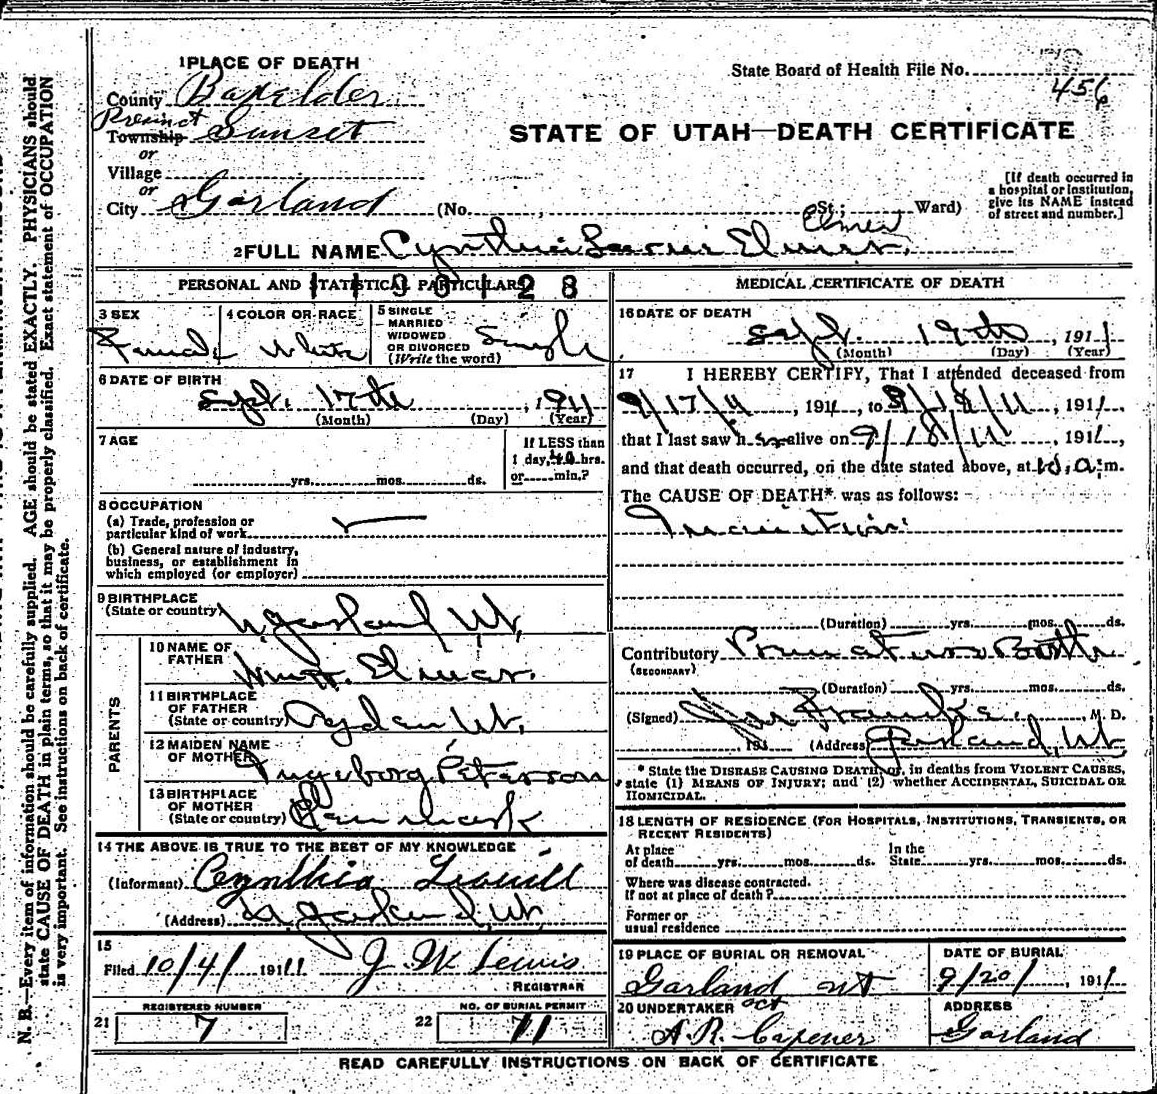 1 PLACE OF DEATH
State Board of Health File No.
456
County Boxelder
Precinct
Township Sunset
or
STATE OF UTAH—DEATH CERTIFICATE
Village
or
City Garland (No. St.; Ward)
[If death occurred in a hospital or institution, give its NAME instead of street and number.]
Elmer
2 FULL NAME Cynthia Elmer.
PERSONAL AND STATISTICAL PARTICULARS
1190128
3 SEX Female
4 COLOR OR RACE White
5 SINGLE MARRIED WIDOWED OR DIVORCED (Write the word) Single
6 DATE OF BIRTH
Sept. 17th, 1911
(Month) (Day) (Year)
7 AGE
If LESS than
1 day, 40 hrs.
yrs. mos. ds. or min.?
8 OCCUPATION
(a) Trade, profession or
particular kind of work
(b) General nature of industry,
business, or establishment in
which employed (or employer)
9 BIRTHPLACE
(State or country) N. Garland Ut.
PARENTS
10 NAME OF
FATHER Elmer.
11 BIRTHPLACE
OF FATHER
(State or country) Ogden Ut.
12 MAIDEN NAME
OF MOTHER Ingeborg Peterson
13 BIRTHPLACE
OF MOTHER
(State or country) Denmark
14 THE ABOVE IS TRUE TO THE BEST OF MY KNOWLEDGE
(Informant) Cynthia Leavitt
(Address) N. Garland, Ut.
15
Filed 10/4/ 1911 J W Lewis
REGISTRAR
REGISTERED NUMBER
21 7
NO. OF BURIAL PERMIT
22 11
MEDICAL CERTIFICATE OF DEATH
16 DATE OF DEATH
Sept. 19th, 1911
(Month) (Day) (Year)
17 I HEREBY CERTIFY, That I attended deceased from
9/17/11, 1911, to 9/18/11, 1911,
that I last saw her alive on 9/18/11, 1911,
and that death occurred, on the date stated above, at 10, a.m.
The CAUSE OF DEATH* was as follows:
Inanition
(Duration) yrs. mos. ds.
Contributory Premature Birth
(SECONDARY)
(Duration) yrs. mos. ds.
(Signed) M. D.
, 191 (Address) Garland, Ut.
* State the DISEASE CAUSING DEATH, or, in deaths from VIOLENT CAUSES,
state (1) MEANS OF INJURY; and (2) whether ACCIDENTAL, SUICIDAL OR
HOMICIDAL.
18 LENGTH OF RESIDENCE (FOR HOSPITALS, INSTITUTIONS, TRANSIENTS, OR
RECENT RESIDENTS)
At place In the
of death yrs. mos. ds. State yrs. mos. ds.
Where was disease contracted.
If not at place of death?
Former or
usual residence
19 PLACE OF BURIAL OR REMOVAL
Garland UT
DATE OF BURIAL
9/20/, 1911
20 UNDERTAKER act
A. R. Capener
ADDRESS
Garland
READ CAREFULLY INSTRUCTIONS ON BACK OF CERTIFICATE
N. B.—Every item of information should be carefully supplied. AGE should be stated EXACTLY. PHYSICIANS should
state CAUSE OF DEATH in plain terms, so that it may be properly classified. Exact statement of OCCUPATION
is very important. See instructions on back of certificate.